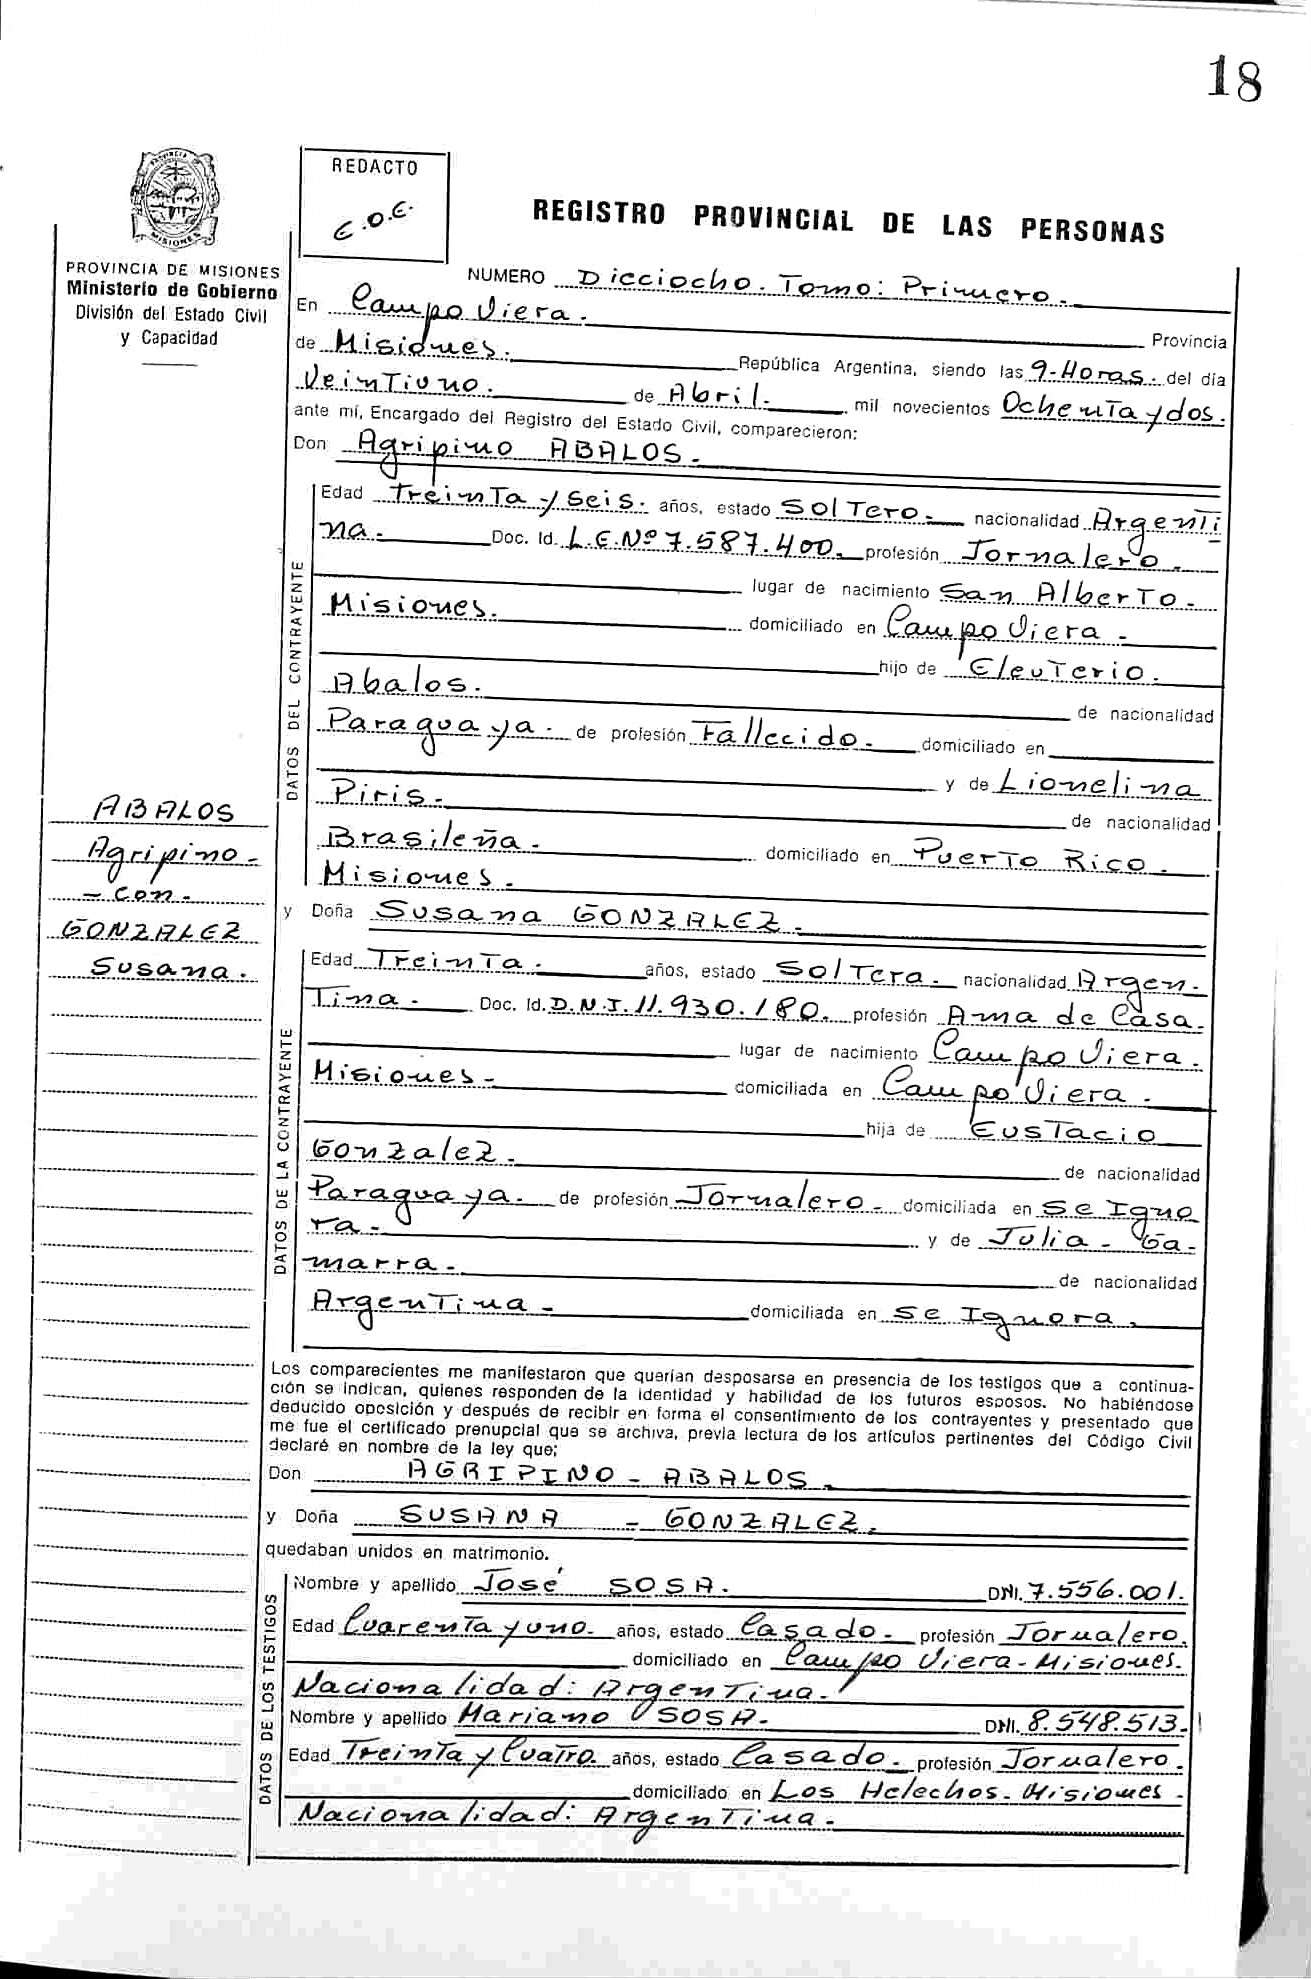 18
REDACTO
E.O.E.
REGISTRO PROVINCIAL DE LAS PERSONAS
PROVINCIA DE MISIONES
Ministerio de Gobierno
División del Estado Civil
y Capacidad
NUMERO Dieciocho. Tomo: Primero.
En Campo Viera. Provincia
de Misiones. República Argentina, siendo las 9-Horas. del día
Veintiuno. de Abril. mil novecientos Ochenta y dos.
ante mí, Encargado del Registro del Estado Civil, comparecieron:
Don Agripino ABALOS.
DATOS DEL CONTRAYENTE
Edad Treinta y Seis. años, estado Soltero. nacionalidad Argenti
na. Doc. Id. L.E.Nº 7.587.400. profesión Jornalero.
lugar de nacimiento San Alberto.
Misiones. domiciliado en Campo Viera.
hijo de Eleuterio.
Abalos. de nacionalidad
Paraguaya. de profesión Fallecido. domiciliado en
y de Lionelina
Piris. de nacionalidad
Brasileña. domiciliado en Puerto Rico.
Misiones.
ABALOS
Agripino-
-con-
GONZALEZ
Susana.
y Doña Susana GONZALEZ.
DATOS DE LA CONTRAYENTE
Edad Treinta. años, estado Soltera. nacionalidad Argen-
Tina. Doc. Id. D.N.I. 11.930.180. profesión Ama de Casa.
lugar de nacimiento Campo Viera.
Misiones- domiciliada en Campo Viera.
hija de Eustacio
Gonzalez. de nacionalidad
Paraguaya. de profesión Jornalero. domiciliada en Se Igno
ra. y de Julia- Ga-
marra. de nacionalidad
Argentina. domiciliada en Se Ignora.
Los comparecientes me manifestaron que querían desposarse en presencia de los testigos que a continua-
ción se indican, quienes responden de la identidad y habilidad de los futuros esposos. No habiéndose
deducido oposición y después de recibir en forma el consentimiento de los contrayentes y presentado que
me fue el certificado prenupcial que se archiva, previa lectura de los artículos pertinentes del Código Civil
declaré en nombre de la ley que;
Don AGRIPINO - ABALOS.
y Doña SUSANA - GONZALEZ.
quedaban unidos en matrimonio.
DATOS DE LOS TESTIGOS
Nombre y apellido José SOSA. DNI. 7.556.001.
Edad Cuarenta y uno. años, estado Casado. profesión Jornalero.
domiciliado en Campo Viera-Misiones.
Nacionalidad: Argentina.
Nombre y apellido Mariano SOSA. DNI. 8.548.513.
Edad Treinta y Cuatro. años, estado Casado. profesión Jornalero.
domiciliado en Los Helechos. Misiones.
Nacionalidad: Argentina.